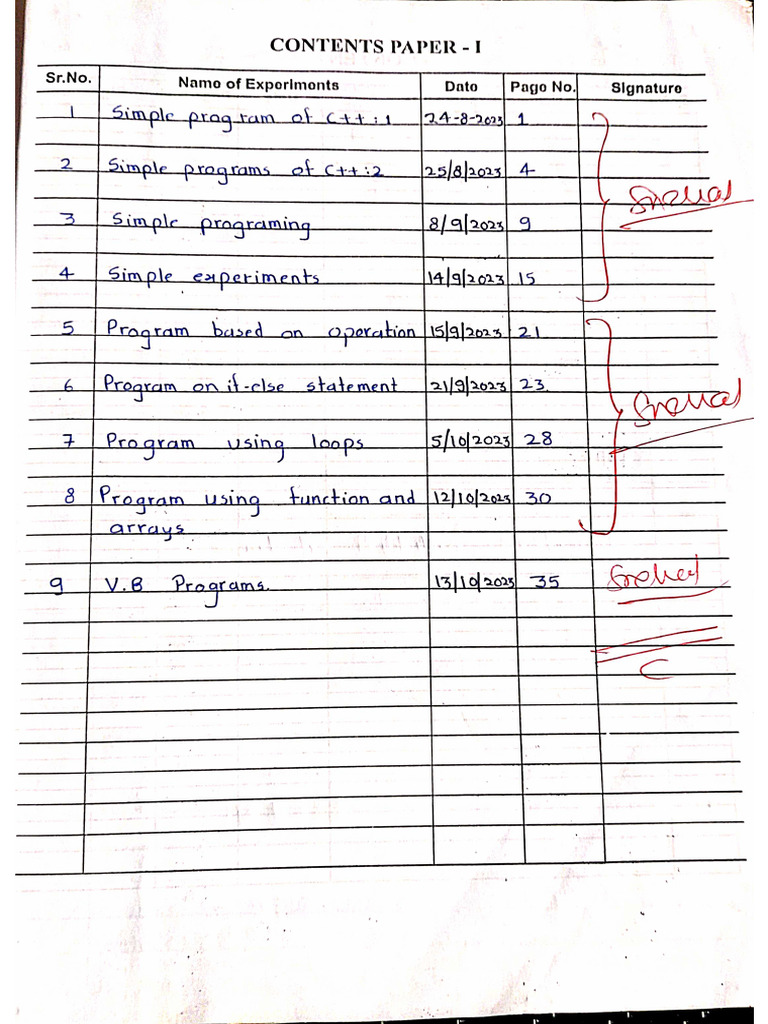 CONTENTS PAPER - I
Sr.No. Name of Experiments Date Page No. Signature
1 Simple program of C++:1 24-8-2023 1
2 Simple programs of C++:2 25/8/2023 4
3 Simple programing 8/9/2023 9
4 Simple experiments 14/9/2023 15
5 Program based on operation 15/9/2023 21
6 Program on if-else statement 21/9/2023 23
7 Program using loops 5/10/2023 28
8 Program using function and 12/10/2023 30
arrays
9 V.B Programs. 13/10/2023 35
C